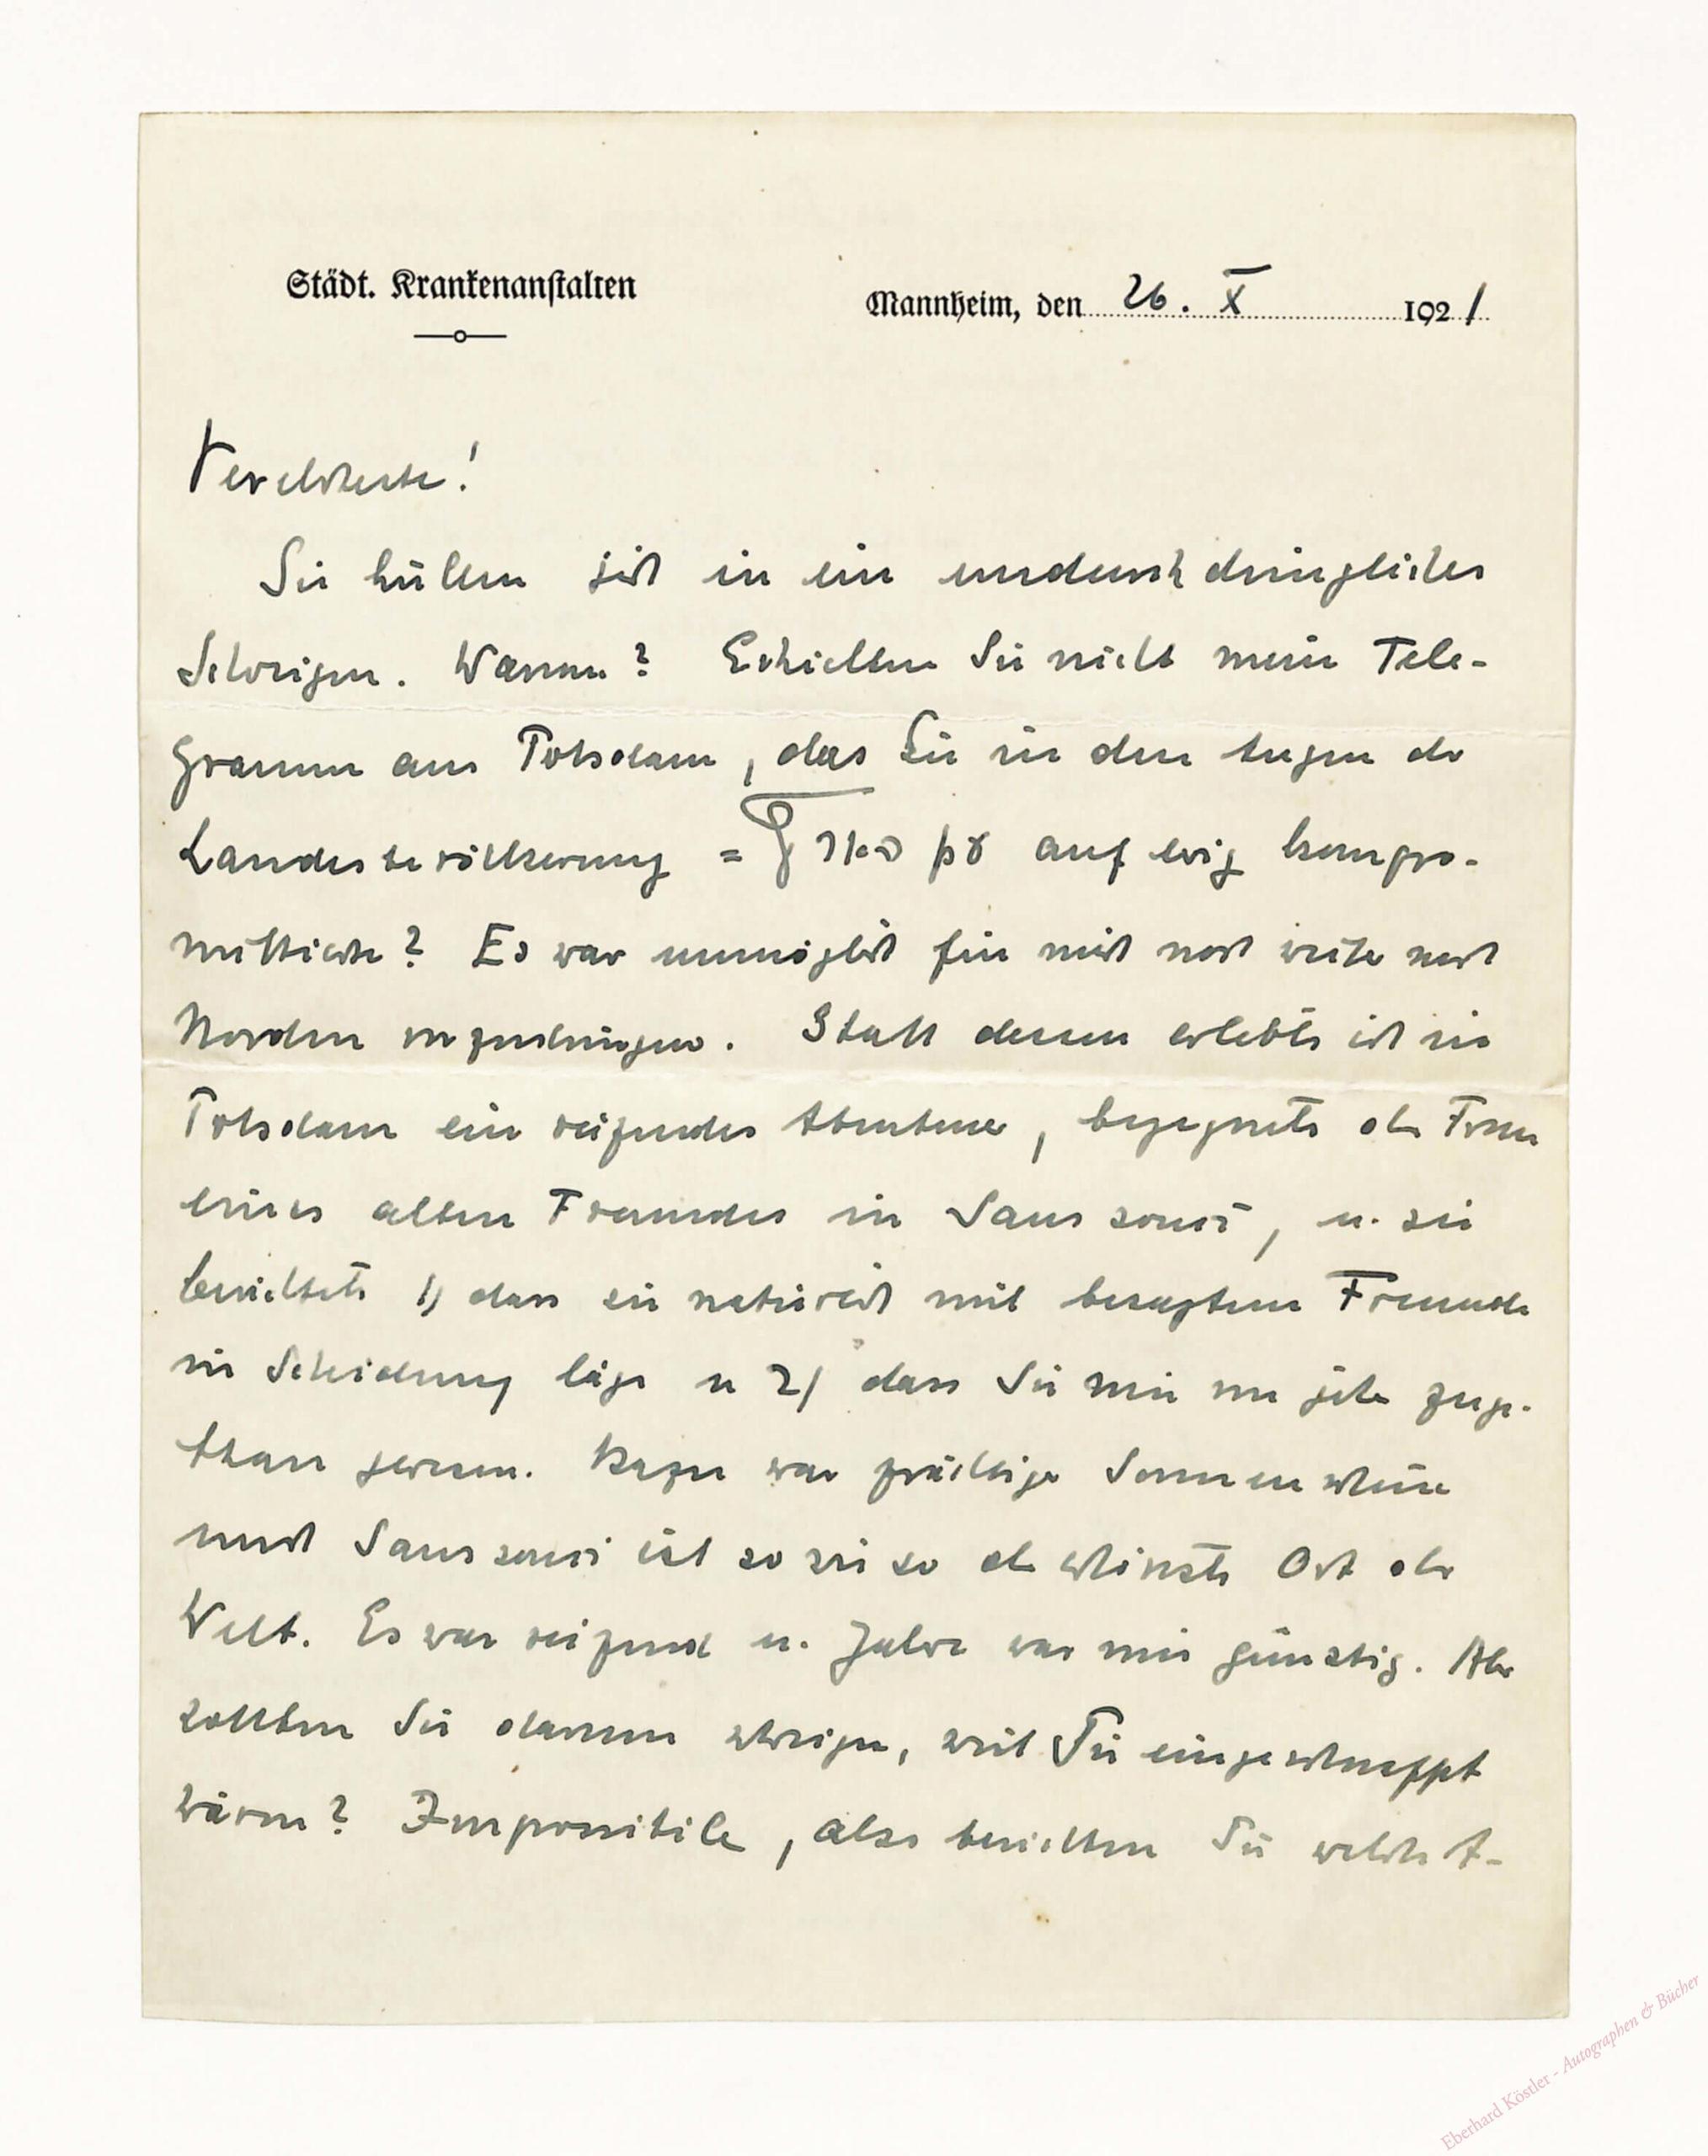 Städt. Krankenanstalten
Mannheim, den 26. X 1921
Verehrteste!
Sie hüllen sich in ein undurchdringliches
Schweigen. Warum? Erhielten Sie nicht mein Tele-
gramm aus Potsdam, das Sie in den Augen der
Landesbevölkerung = auf ewig kompro-
mittierte? Es war unmöglich für mich noch weiter nach
Norden vorzudringen. Statt dessen erlebte ich in
Potsdam ein reizendes Abenteuer, begegnete der Frau
eines alten Freundes in Sanssouci, u. sie
berichtete 1) dass sie natürlich mit besagtem Freunde
in Scheidung läge u 2) dass Sie mir von jeher zuge-
than gewesen. Dazu war prächtiger Sonnenschein
und Sanssouci ist so wie so der schönste Ort der
Welt. Es war reizend u. war mir günstig. Aber
sollten Sie darum schweigen, weil Sie eingeschnappt
wären? Impossibile, also berichten Sie welche A-
Eberhard Köstler - Autographen & Bücher